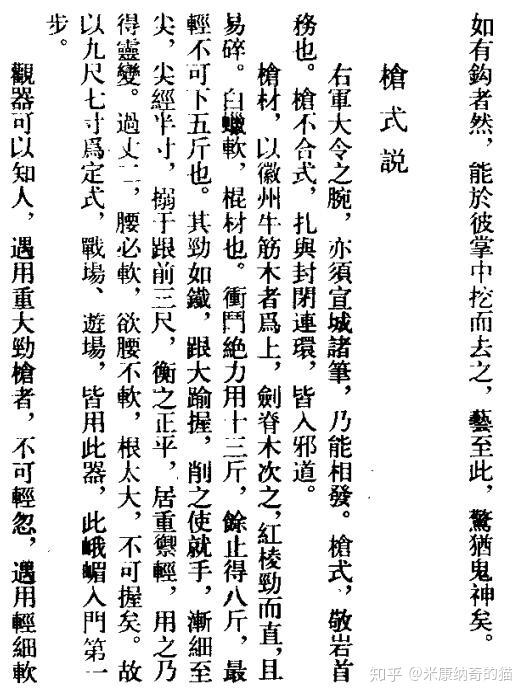 如有鈎者然，能於彼掌中挖而去之，藝至此，驚猶鬼神矣。
槍式說
右軍大令之腕，亦須宣城諸筆，乃能相發。槍式，敬岩首
務也。槍不合式，扎與封閉連環，皆入邪道。
槍材，以徽州牛筋木者爲上，劍脊木次之，紅棱勁而直，且
易碎。白蠟軟，棍材也。衝鬥絶力用十三斤，餘止得八斤，最
輕不可下五斤也。其勁如鐵，跟大踰握，削之使就手，漸細至
尖，尖經半寸，搦于跟前三尺，衡之正平，居重禦輕，用之乃
得靈變。過丈二，腰必軟，欲腰不軟，根太大，不可握矣。故
以九尺七寸爲定式，戰場、遊場，皆用此器，此峨嵋入門第一
步。
觀器可以知人，遇用重大勁槍者，不可輕忽，遇用輕細軟
知乎 @米康纳奇的猫